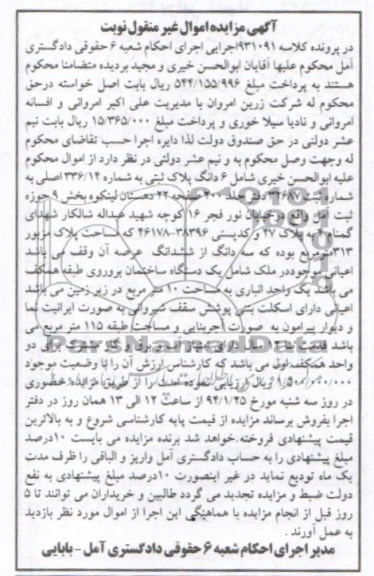 آگهی مزایده اموال غیر منقول نوبت
در پرونده کلاسه ۹۳۱۰۹۱اجرایی اجرای احکام شعبه ۶ حقوقی دادگستری
آمل محکوم علیها آقایان ابوالحسن خیری و مجید بردیده متضامنا محکوم
هستند به پرداخت مبلغ ۵۴۴/۱۵۵/۹۹۶ ریال بابت اصل خواسته درحق
محکوم له شرکت زرین امروان با مدیریت علی اکبر امروانی و افسانه
امروانی و نادیا سیلا خوری و پرداخت مبلغ ۱۵/۳۶۵/۰۰۰ ریال بابت نیم
عشر دولتی در حق صندوق دولت لذا دایره اجرا حسب تقاضای محکوم
له وجهت وصل محکوم به و نیم عشر دولتی در نظر دارد از اموال محکوم
علیه ابوالحسن خیری شامل ۶ دانگ پلاک ثبتی به شماره ۳۳۶/۱۴ اصلی به
شماره ثبت ۳۲۶۸۷ دفتر جلد ۲۰۰ صفحه ۲۲ دهستان لیتکوه بخش ۹ حوزه
ثبت آمل واقع درخیابان نور فجر ۱۶ کوچه شهید عبداله شالکار شهدای
گمنام ۴ به پلاک ۲۷ و کدپستی ۳۸۳۹۶-۴۶۱۷۸ که مساحت پلاک مزبور
۳۱۳مترمربع بوده که سه دانگ از ششدانگ عرصه آن وقف می باشد
اعیانی موجوددر ملک شامل یک دستگاه ساختمان برروری طبقه همکف
می باشد یک واحد انباری به مساحت ۱۰ متر مربع در زیر زمین می باشد
اعیانی دارای اسکلت بتنی پوشش سقف شیروانی به صورت ایرانیت نما
و دیوار پیرامون به صورت آجربنایی و مساحت طبقه ۱۱۵ متر مربع می
باشد قدمت بنا ۱۲ سال دارای امتیاز آب و برق و گاز مشترک برای دو
واحد همکف اول می باشد که کارشناس ارزش آن را با وضعیت موجود
۱/۵۰۰/۰۰۰/۰۰۰ ریال ارزیابی نموده است را از طریق مزایده حضوری
در روز سه شنبه مورخ ۹۴/۱/۲۵ از ساعت ۱۲ الی ۱۳ همان روز در دفتر
اجرا بفروش برساند مزایده از قیمت پایه کارشناسی شروع و به بالاترین
قیمت پیشنهادی فروخته.خواهد شد برنده مزایده می بایست ۱۰درصد
مبلغ پیشنهادی را به حساب دادگستری آمل واریز و الباقی را ظرف مدت
یک ماه تودیع نماید در غیر اینصورت ۱۰درصد مبلغ پیشنهادی به نفع
دولت ضبط و مزایده تجدید می گردد طالبین و خریداران می توانند تا ۵
روز قبل از انجام مزایده با هماهنگی این اجرا از اموال مورد نظر بازدید
به عمل آورند .
مدیر اجرای احکام شعبه ۶ حقوقی دادگستری آمل - بابایی